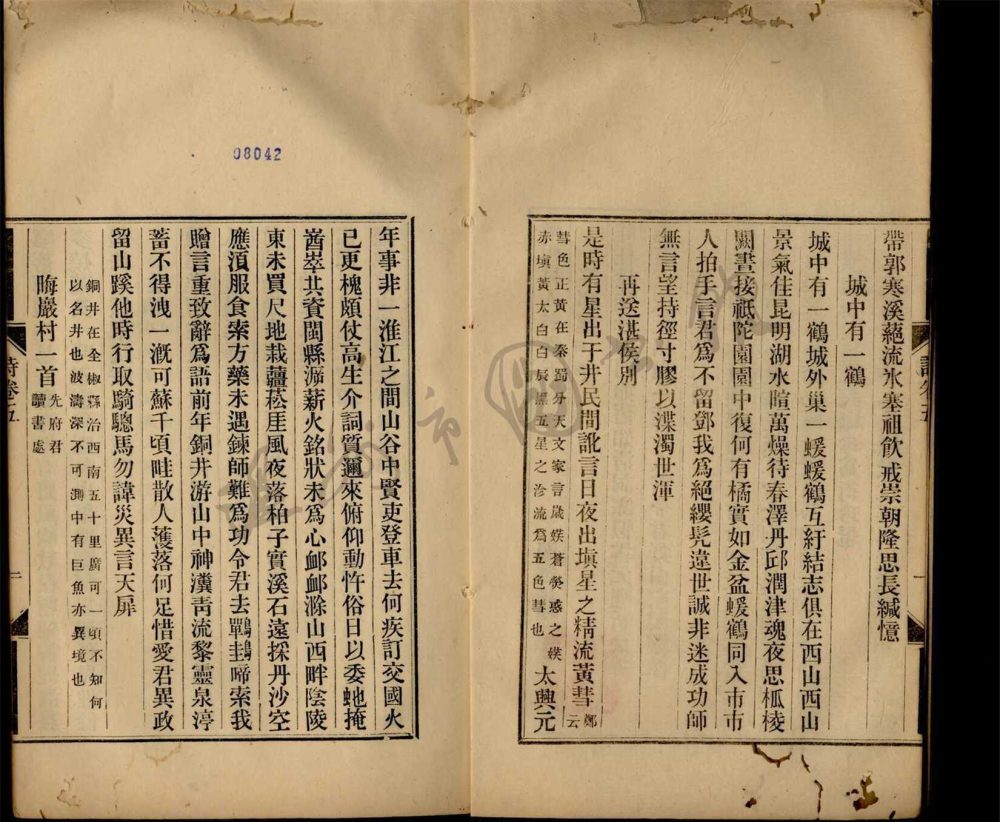 帶郭寒溪蒓流氷塞祖飲戒崇朝隆思長緘憶
城中有一鶴
城中有一鶴城外巢一蝯蝯鶴互紆結志俱在西山西山
景氣佳昆明湖水暄萬燥待春澤丹邱潤津魂夜思柧棱
闕晝接祇陀園園中復何有橘實如金盆蝯鶴同入市市
人拍手言君爲不留鄧我爲絕纓髡違世誠非迷成功師
無言望持徑寸膠以澟濁世渾
再送湛侯別
是時有星出于井民間訛言日夜出塡星之精流黃彗鄭云
彗色正黃在秦蜀分天文家言歲蝧蒼熒惑之蝧
赤塡黃太白白辰黑五星之沴流爲五色彗也
太興元
詩卷五
一
08042
年事非一淮江之間山谷中賢吏登車去何疾訂交國火
已更槐頗仗高生介詞質邇來俯仰動忤俗日以委虵掩
峕崒共資閩縣㴑薪火銘狀未爲心䘏䘏滁山西畔陰陵
東未買尺地栽虇菘崖風夜落柏子實溪石遠採丹沙空
應湏服食索方藥未遇鍊師難爲功令君去鸎鵠圭啼索我
贈言重致辭爲語前年銅井游山中神瀵靑流黎靈泉渟
蓄不得洩一漑可蘇千頃畦散人濩落何足惜愛君異政
留山蹊他時行取騎驄馬勿諱災異言天屝
銅井在全椒縣治西南五十里廣可一頃不知何
以名井也波濤深不可測中有巨魚亦異境也
晦巖村一首
先府君
讀書處
詩卷五
一